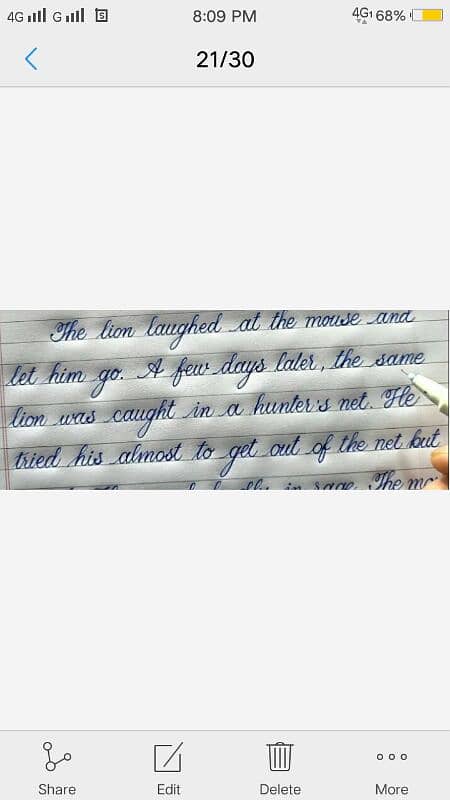 4G G 8:09 PM 4G 68%
21/30
The lion laughed at the mouse and
let him go. A few days later, the same
lion was caught in a hunter's net. He
tried his almost to get out of the net but
in rage. The
Share Edit Delete More